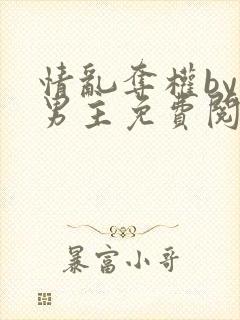 情亂奪權by
男主免費閱
暴富小哥